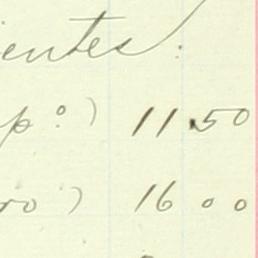 ientes.
po) 11.50
ro) 16 00